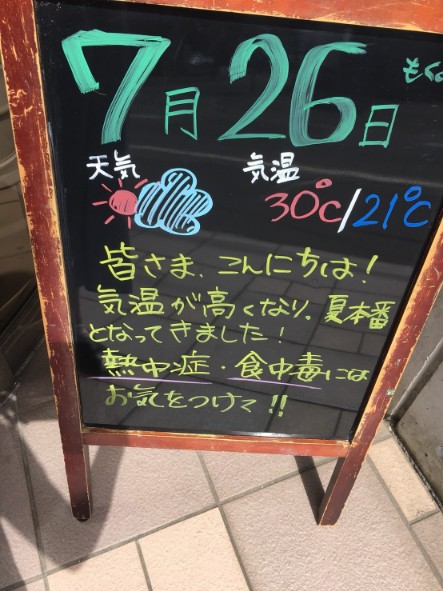 7月26日 もく
天気 気温
30℃/21℃
皆さま、こんにちは!
気温が高くなり、夏本番
となってきました!
熱中症・食中毒には
お気をつけて!!